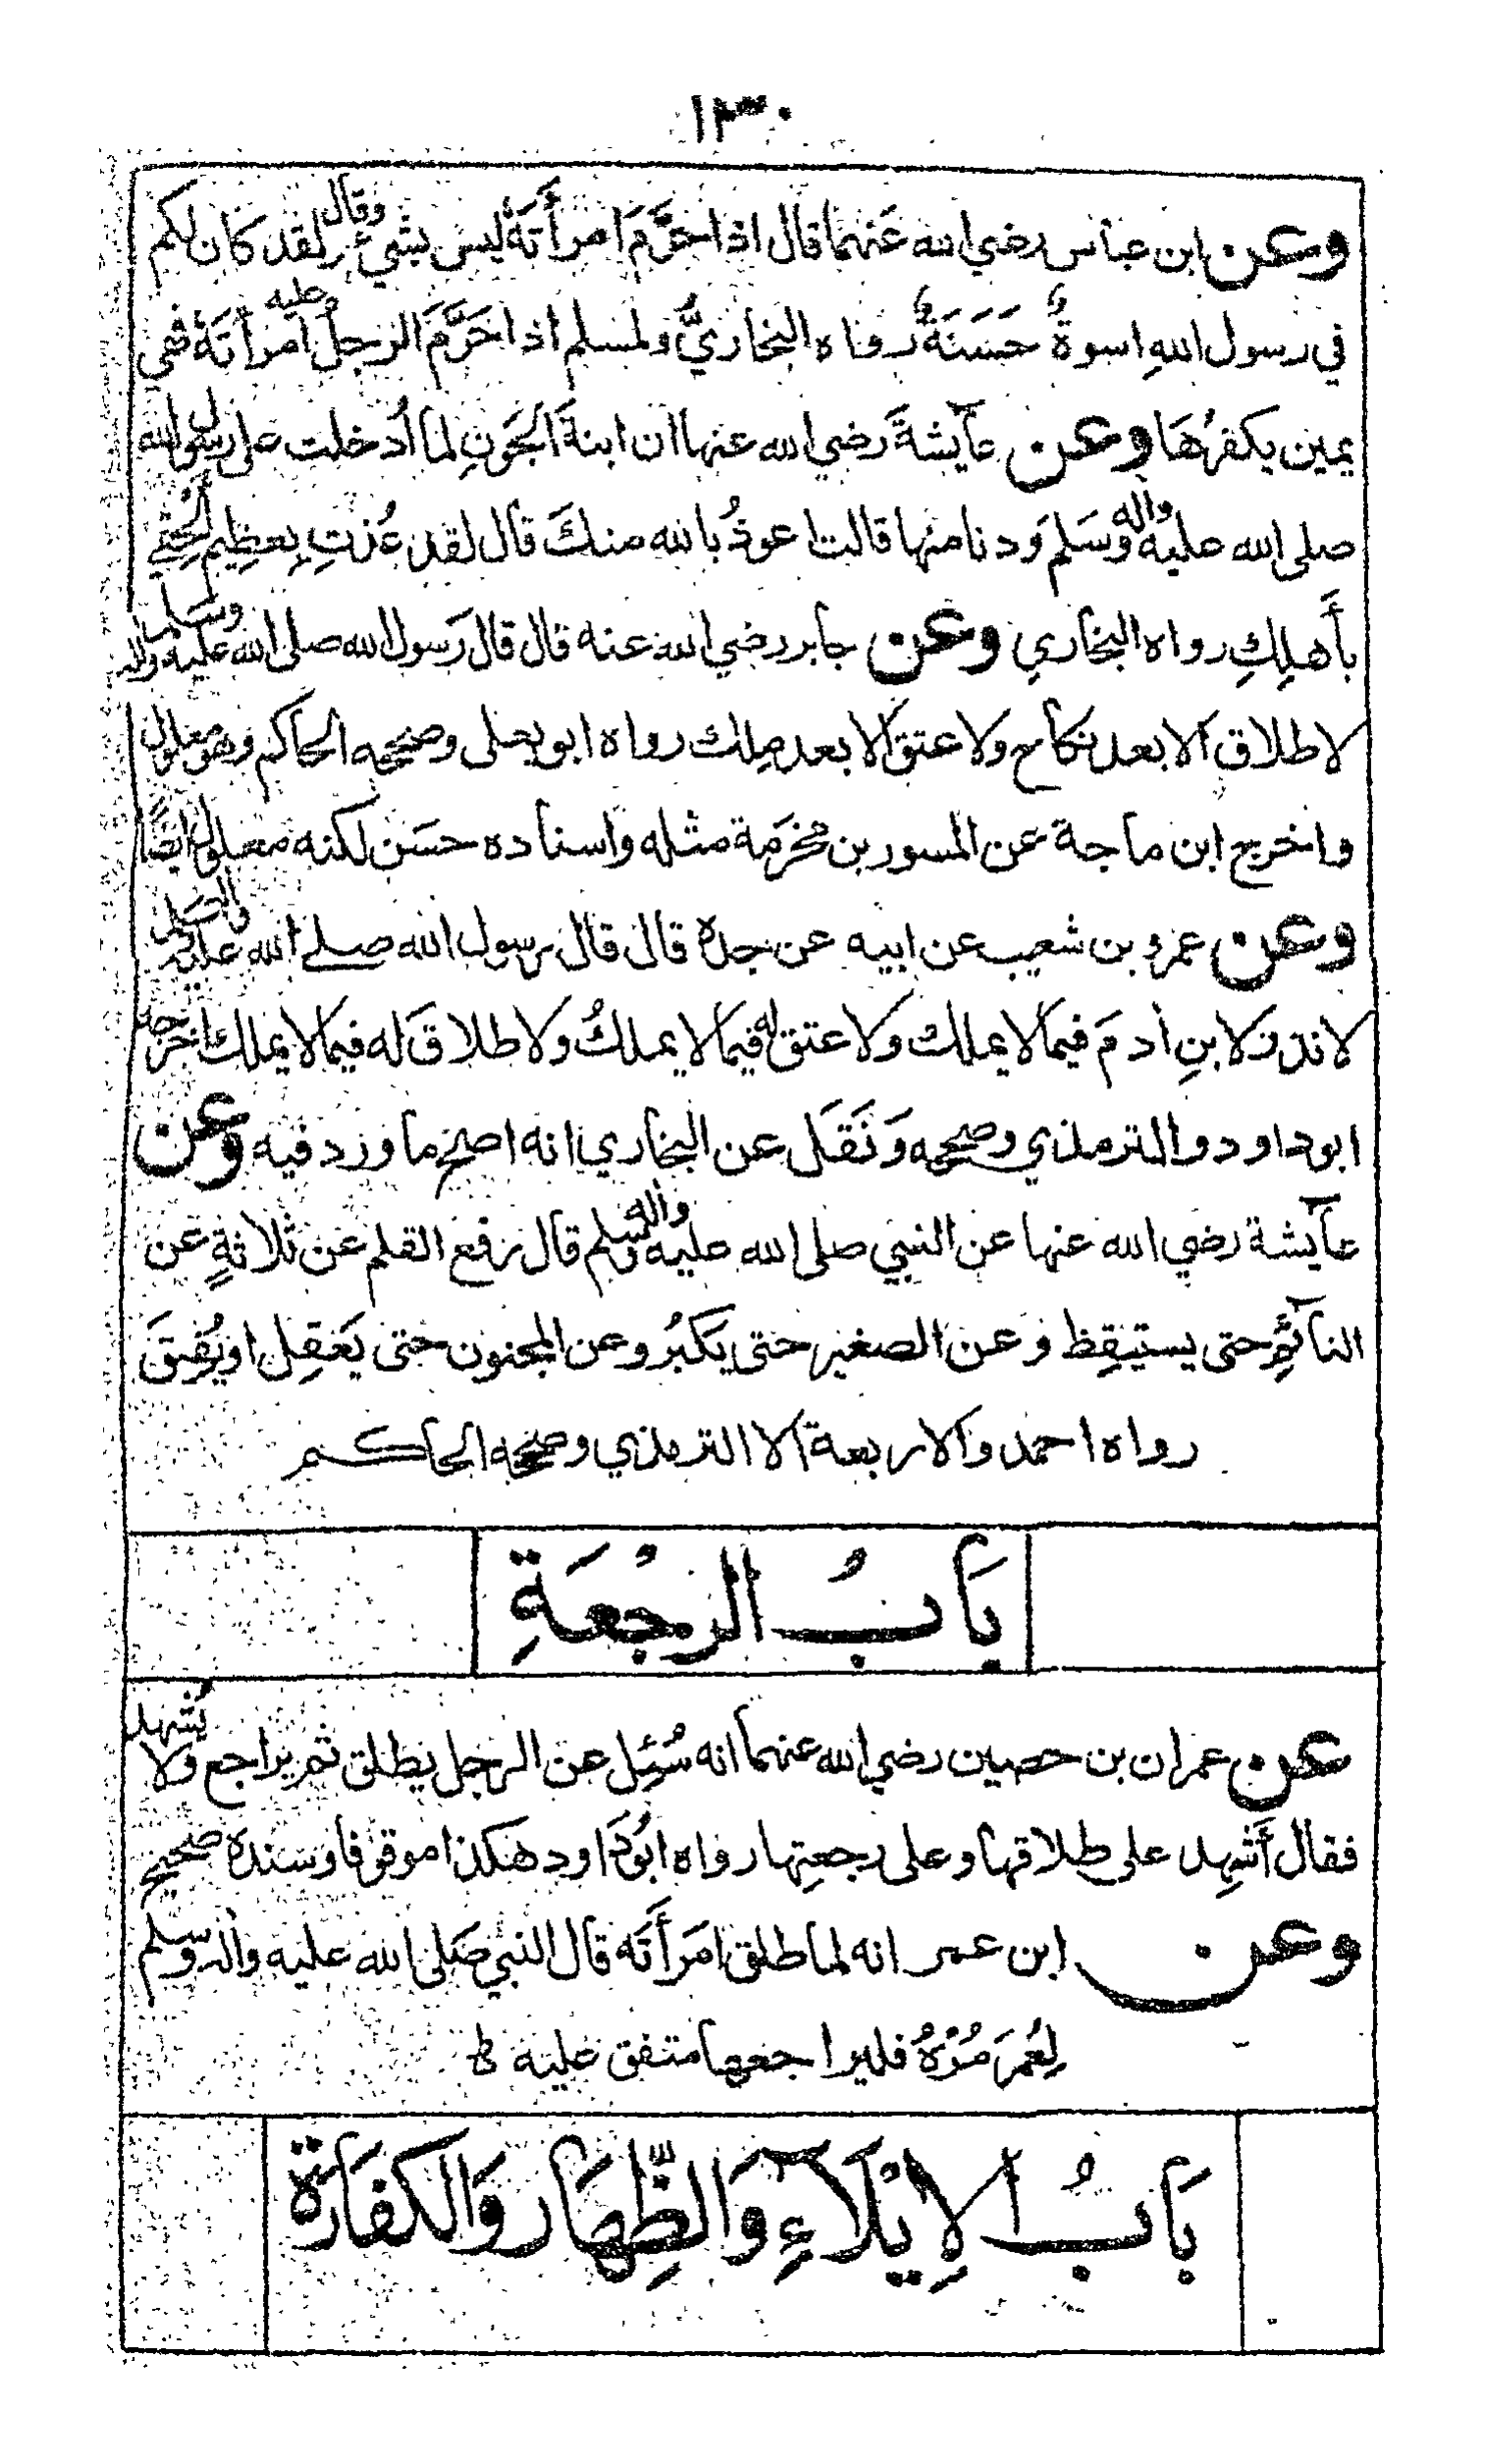 ١٣٠
وعن ابن عباس رضي الله عنهما قال اذا حَرَّمَ امرأتَهُ ليس بشيءٍ وقال لقد كان لكم
في رسول اللهِ اسوةٌ حَسَنَةٌ رواه البخاريُّ ولمسلم اذا حَرَّمَ الرجلُ عليه امرأتَهُ فهي
يمين يكفرُهَا وعن عآيشةَ رضي الله عنها ان ابنةَ الجَونِ لما أُدخلت على رسول الله
صلى الله عليه وآله وسَلم وَدنا منها قالت اعوذُ بالله منكَ قال لقد عُذتِ بِعظِيم الحَقي
بأَهلِكِ رواه البخاري وعن جابر رضي الله عنه قال قال رَسول الله صلى الله عليه واله وسلم
لا طلاق الا بعد نكاح ولا عتق الا بعد مِلك رواه ابو يعلى وصححه الحاكم وهو معلول
واخرج ابن ماجة عن المسور بن مخرَمَة مثله واسناده حسَن لكنه معلول ايضًا
وعن عمرو بن شعيب عن ابيه عن جده قال قال رسول الله صلے الله عليه واله وسلم
لا نذر لابنِ أدمَ فيما لا يملك ولا عتق له فيما لا يملكُ ولا طلاقَ له فيما لا يملك اخرجه
ابوداود والترمذي وصححه وَنَقَل عن البخاري انه اصح ما ورد فيه وعن
عآيشة رضي الله عنها عن النبي صلى الله عليه وآله وسلم قال رفع القلم عن ثلاثةٍ عن
النائمِ حتى يستيقِظ وعن الصغير حتى يَكبُر وعن المجنون حتى يَعقِل او يُفيقَ
رواه احمد والاربعة الا الترمذي وصححه الحاكم
بَابُ الرَجْعَةِ
عن عمران بن حصين رضي الله عنهما انه سُئِل عن الرجل يطلق ثم يراجع ولا يُشهد
فقال أَشهِد على طلاقها وعلى رجعتِها رواه ابُوَداود هكذا موقوفا وسنده صحيح
وعن ابن عمر انه لما طلق امَرأتَه قال النبي صَلى الله عليه واله وسلم
لِعُمَرَ مُرْهُ فليراجعها متفق عليه ط
بَابُ الاِيْلَاءِ وَالظِّهَار وَالكفَارَة